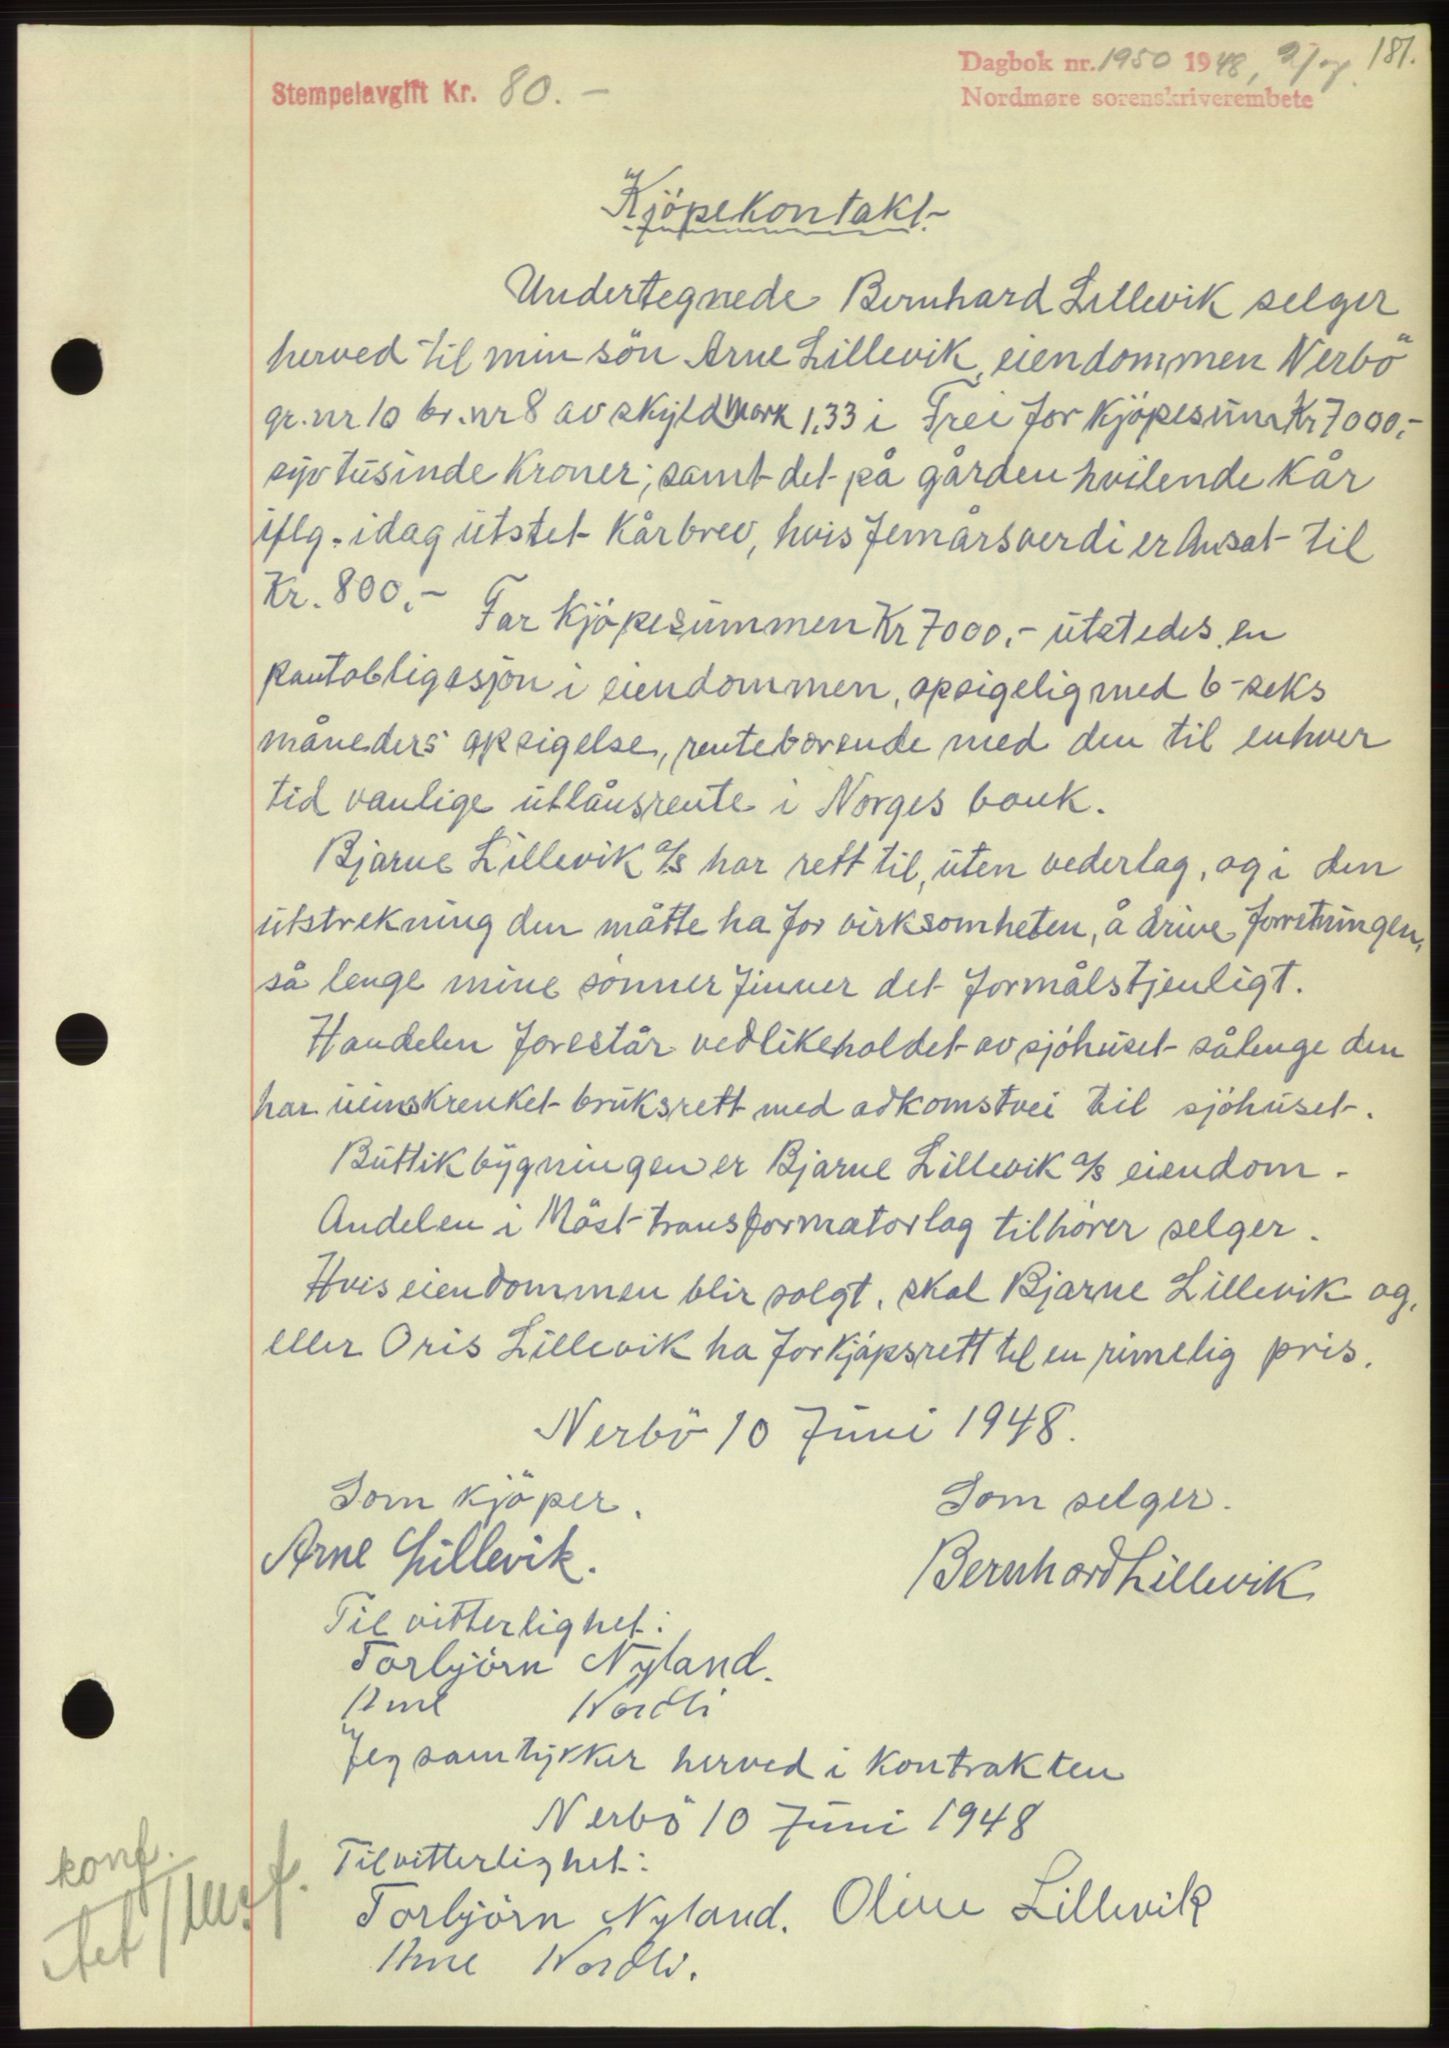 181.
Dagbok nr. 1950 1948, 2/7
Stempelavgift Kr. 80.-
Nordmøre sorenskriverembete
Kjöpekontakt-
Undertegnede Bernhard Lillevik selger
herved til min sön Arne Lillevik, eiendommen Nerbö
gr. nr 10 br. nr 8 av skyld mark 1.33 i Frei for kjöpesum Kr 7000,-
syv tusinde kroner; samt det på gården hvilende kår
iflg. idag utstet kårbrev, hvis femårsverdi er Ansat til
Kr. 800.-
For kjöpesummen Kr 7000,- utstedes en
pantobligasjon i eiendommen, opsigelig med 6-seks
måneders opsigelse, rentebærende med den til enhver
tid vanlige utlånsrente i Norges bank.
Bjarne Lillevik a/s har rett til, uten vederlag, og i den
utstrekning den måtte ha for virksomheten, å drive forretningen,
så lenge mine sönner finner det formålstjenligt.
Handelen forestår vedlikeholdet av sjöhuset sålenge den
har uinnskrenket bruksrett med adkomstvei til sjöhuset.
Buttikbygningen er Bjarne Lillevik a/s eiendom.
Andelen i Möst transformatorlag tilhörer selger.
Hvis eiendommen blir solgt, skal Bjarne Lillevik og,
eller Oris Lillevik ha forkjöpsrett til en rimelig pris.
Nerbö 10 Juni 1948.
Som kjöper. Som selger.
Arne Lillevik. Bernhard Lillevik
Til vitterlighet:
Torbjörn Nyland.
Arne Nordli
Jeg samtykker herved i kontrakten
Nerbö 10 Juni 1948
Til vitterlighet:
Torbjörn Nyland. Oline Lillevik
Arne Nordli.
konf.